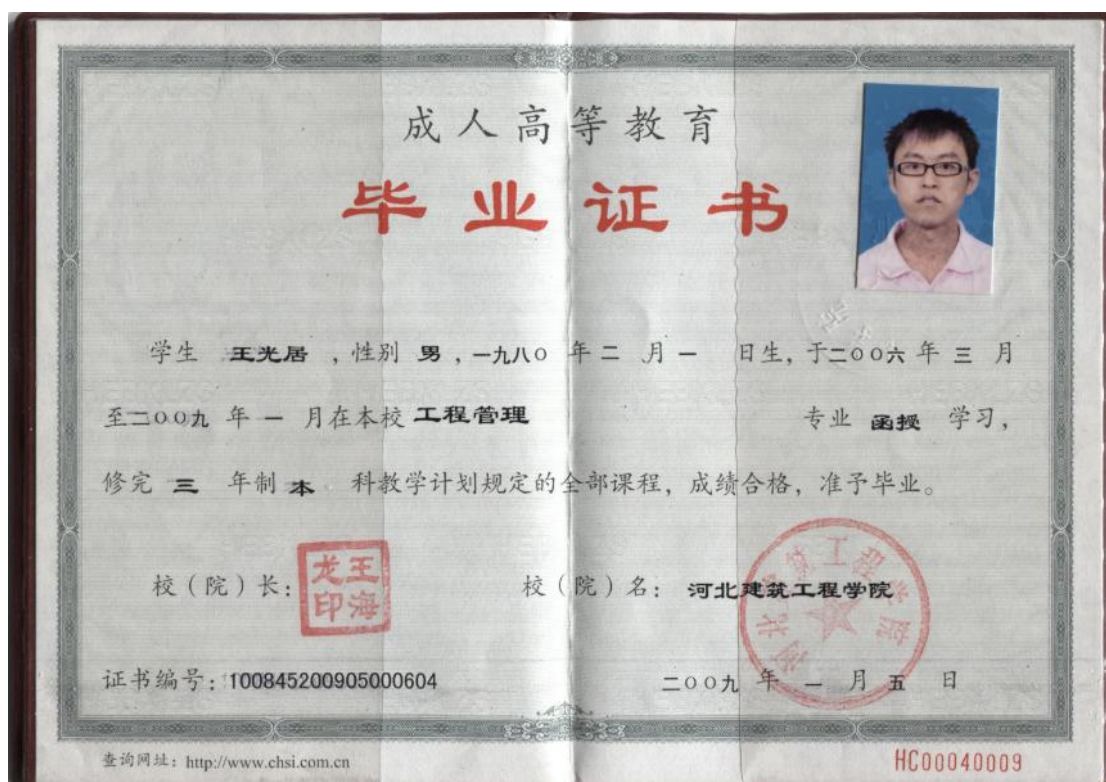 成人高等教育
毕业证书
学生 王光居 ，性别 男 ，一九八〇 年 二 月 一 日生，于二〇〇六 年 三 月
至二〇〇九 年 一 月在本校 工程管理 专业 函授 学习，
修完 三 年制 本 科教学计划规定的全部课程，成绩合格，准予毕业。
校（院）长： 王海龙印 校（院）名： 河北建筑工程学院
河北建筑工程学院
证书编号：100845200905000604 二〇〇九 年 一 月 五 日
查询网址：http://www.chsi.com.cn HC00040009